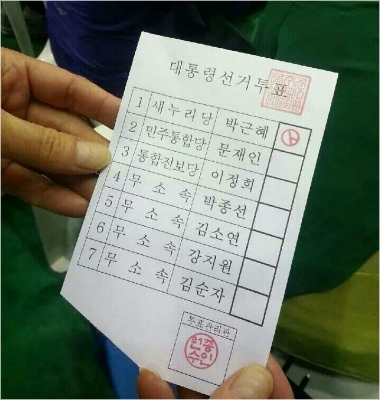 대통령선거투표
1 새누리당 박근혜
2 민주통합당 문재인
3 통합진보당 이정희
4 무소속 박종선
5 무소속 김소연
6 무소속 강지원
7 무소속 김순자
투표관리관